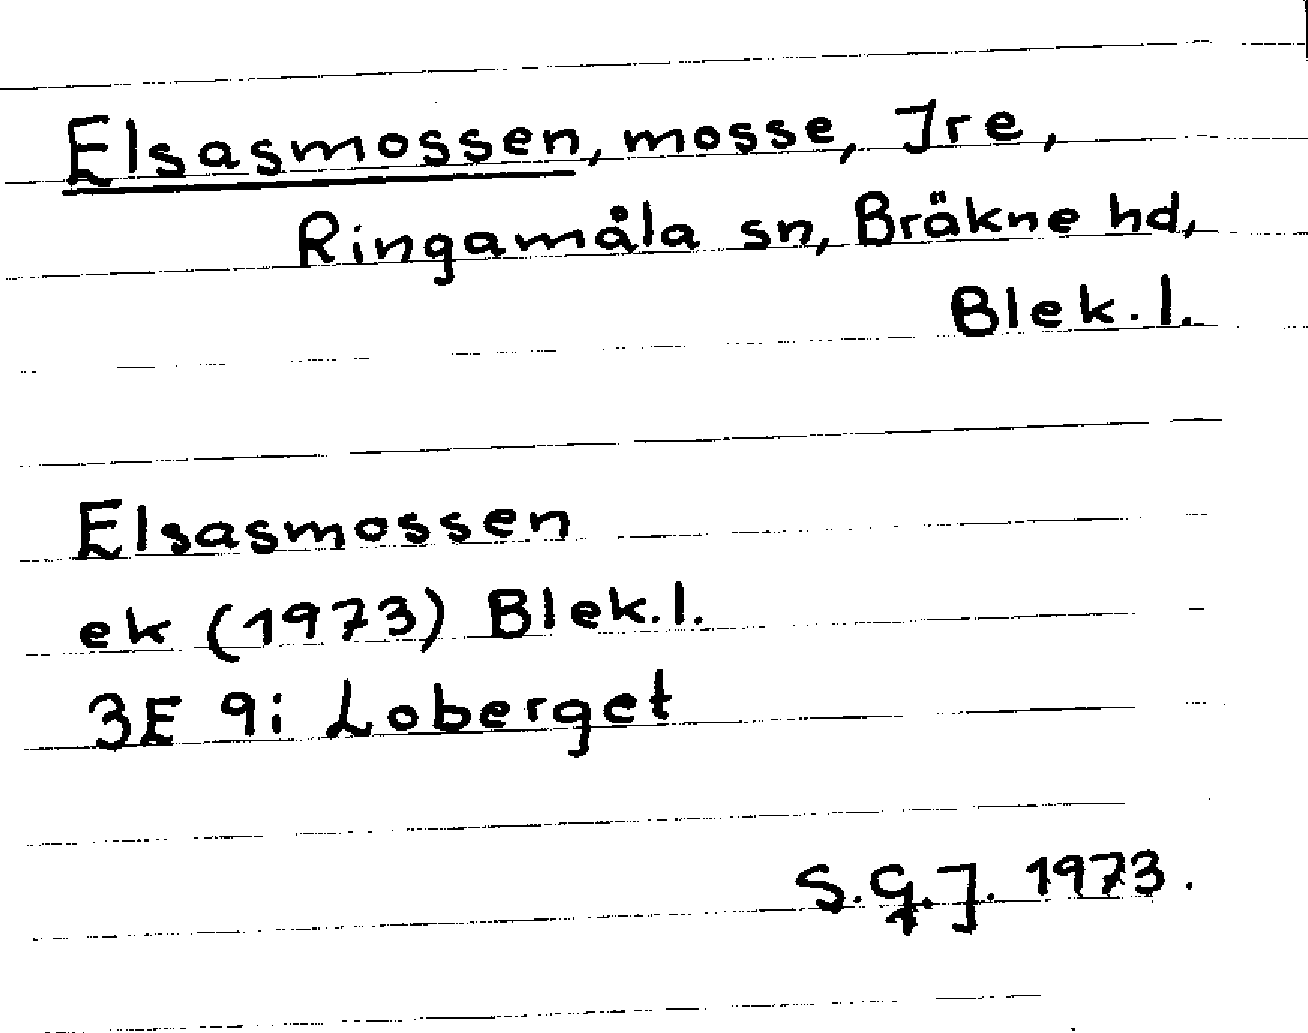 Elsasmossen, mosse, Ire,
Ringamåla sn, Bräkne hd,
Blek. l.
Elsasmossen
ek (1973) Blek. l.
3E 9i Loberget
S.G.J. 1973.